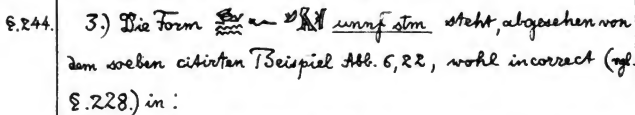 §.244. 3.) Die Form unnf stm steht, abgesehen von
dem soeben citirten Beispiel Abb. 6,22, wohl incorrect (vgl.
§.228.) in: